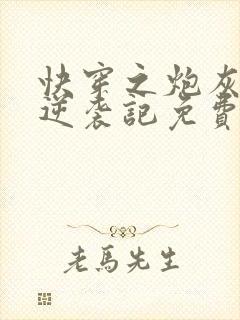 快穿之炮灰
逆袭記免費
老馬先生